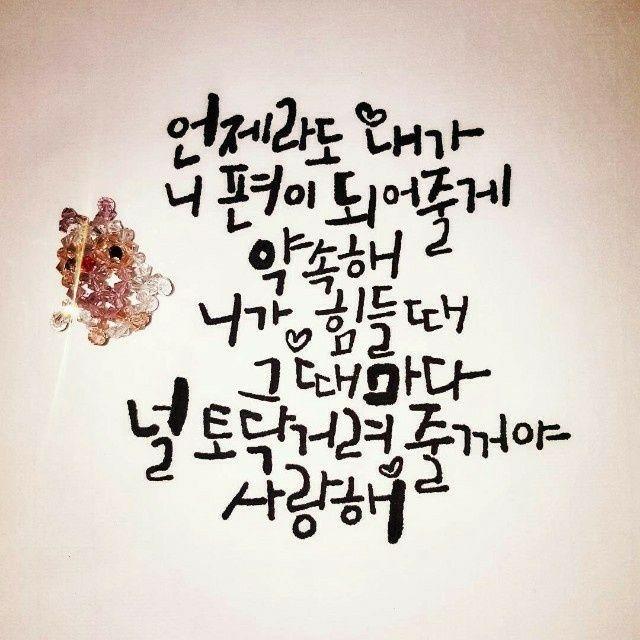 언제라도 내가
니 편이 되어줄게
약속해
니가 힘들때
그때마다
널 토닥거려 줄꺼야
사랑해